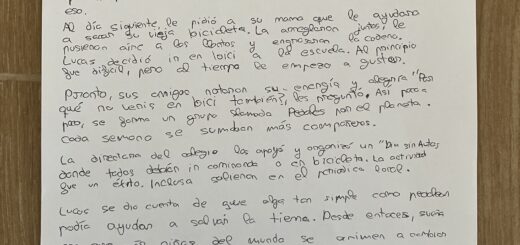 eso.
Al día siguiente, le pidió a su mama que le ayudara
a sacar su vieja bicicleta. La arreglaron juntos, le
pusieron aire a las llantas y engrasaron la cadena.
Lucas decidió ir en loici a la escuela. Al principio
fue dificil, pero al tiempo le empezo a gustar.
Pronto, sus amigos notaron su energía y alegria "Por
qué no venis en loici también?, les preguntó. Asi poco a
poco, se formo un grupo llamado Pedales por el planeta.
Cada semana se sumaban más compañeros.
La directora del colegio los apoyó y organizó un "Dia sin Autos
donde todos debian ir caminando o en bicicleta. La actividad
fue un éxito. Incluso salieron en el periodico local.
Lucas se dio cuenta de que algo tan simple como pedalear
podía ayudar a salvar la tierra. Desde entoces, sueña
niños del mundo se animen a cambiar